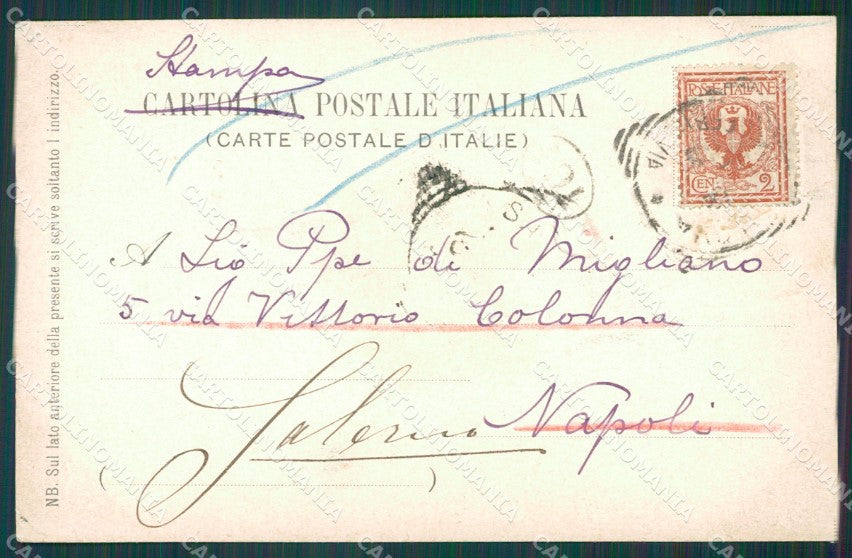 Stampa
CARTOLINA POSTALE ITALIANA
(CARTE POSTALE D'ITALIE)
POSTE ITALIANE
CEN. 2
A Sig Ppe di Migliano
5 via Vittorio Colonna
Salerno Napoli
( )
NB. Sul lato anteriore della presente si scrive soltanto l indirizzo.
CARTOLINOMANIA